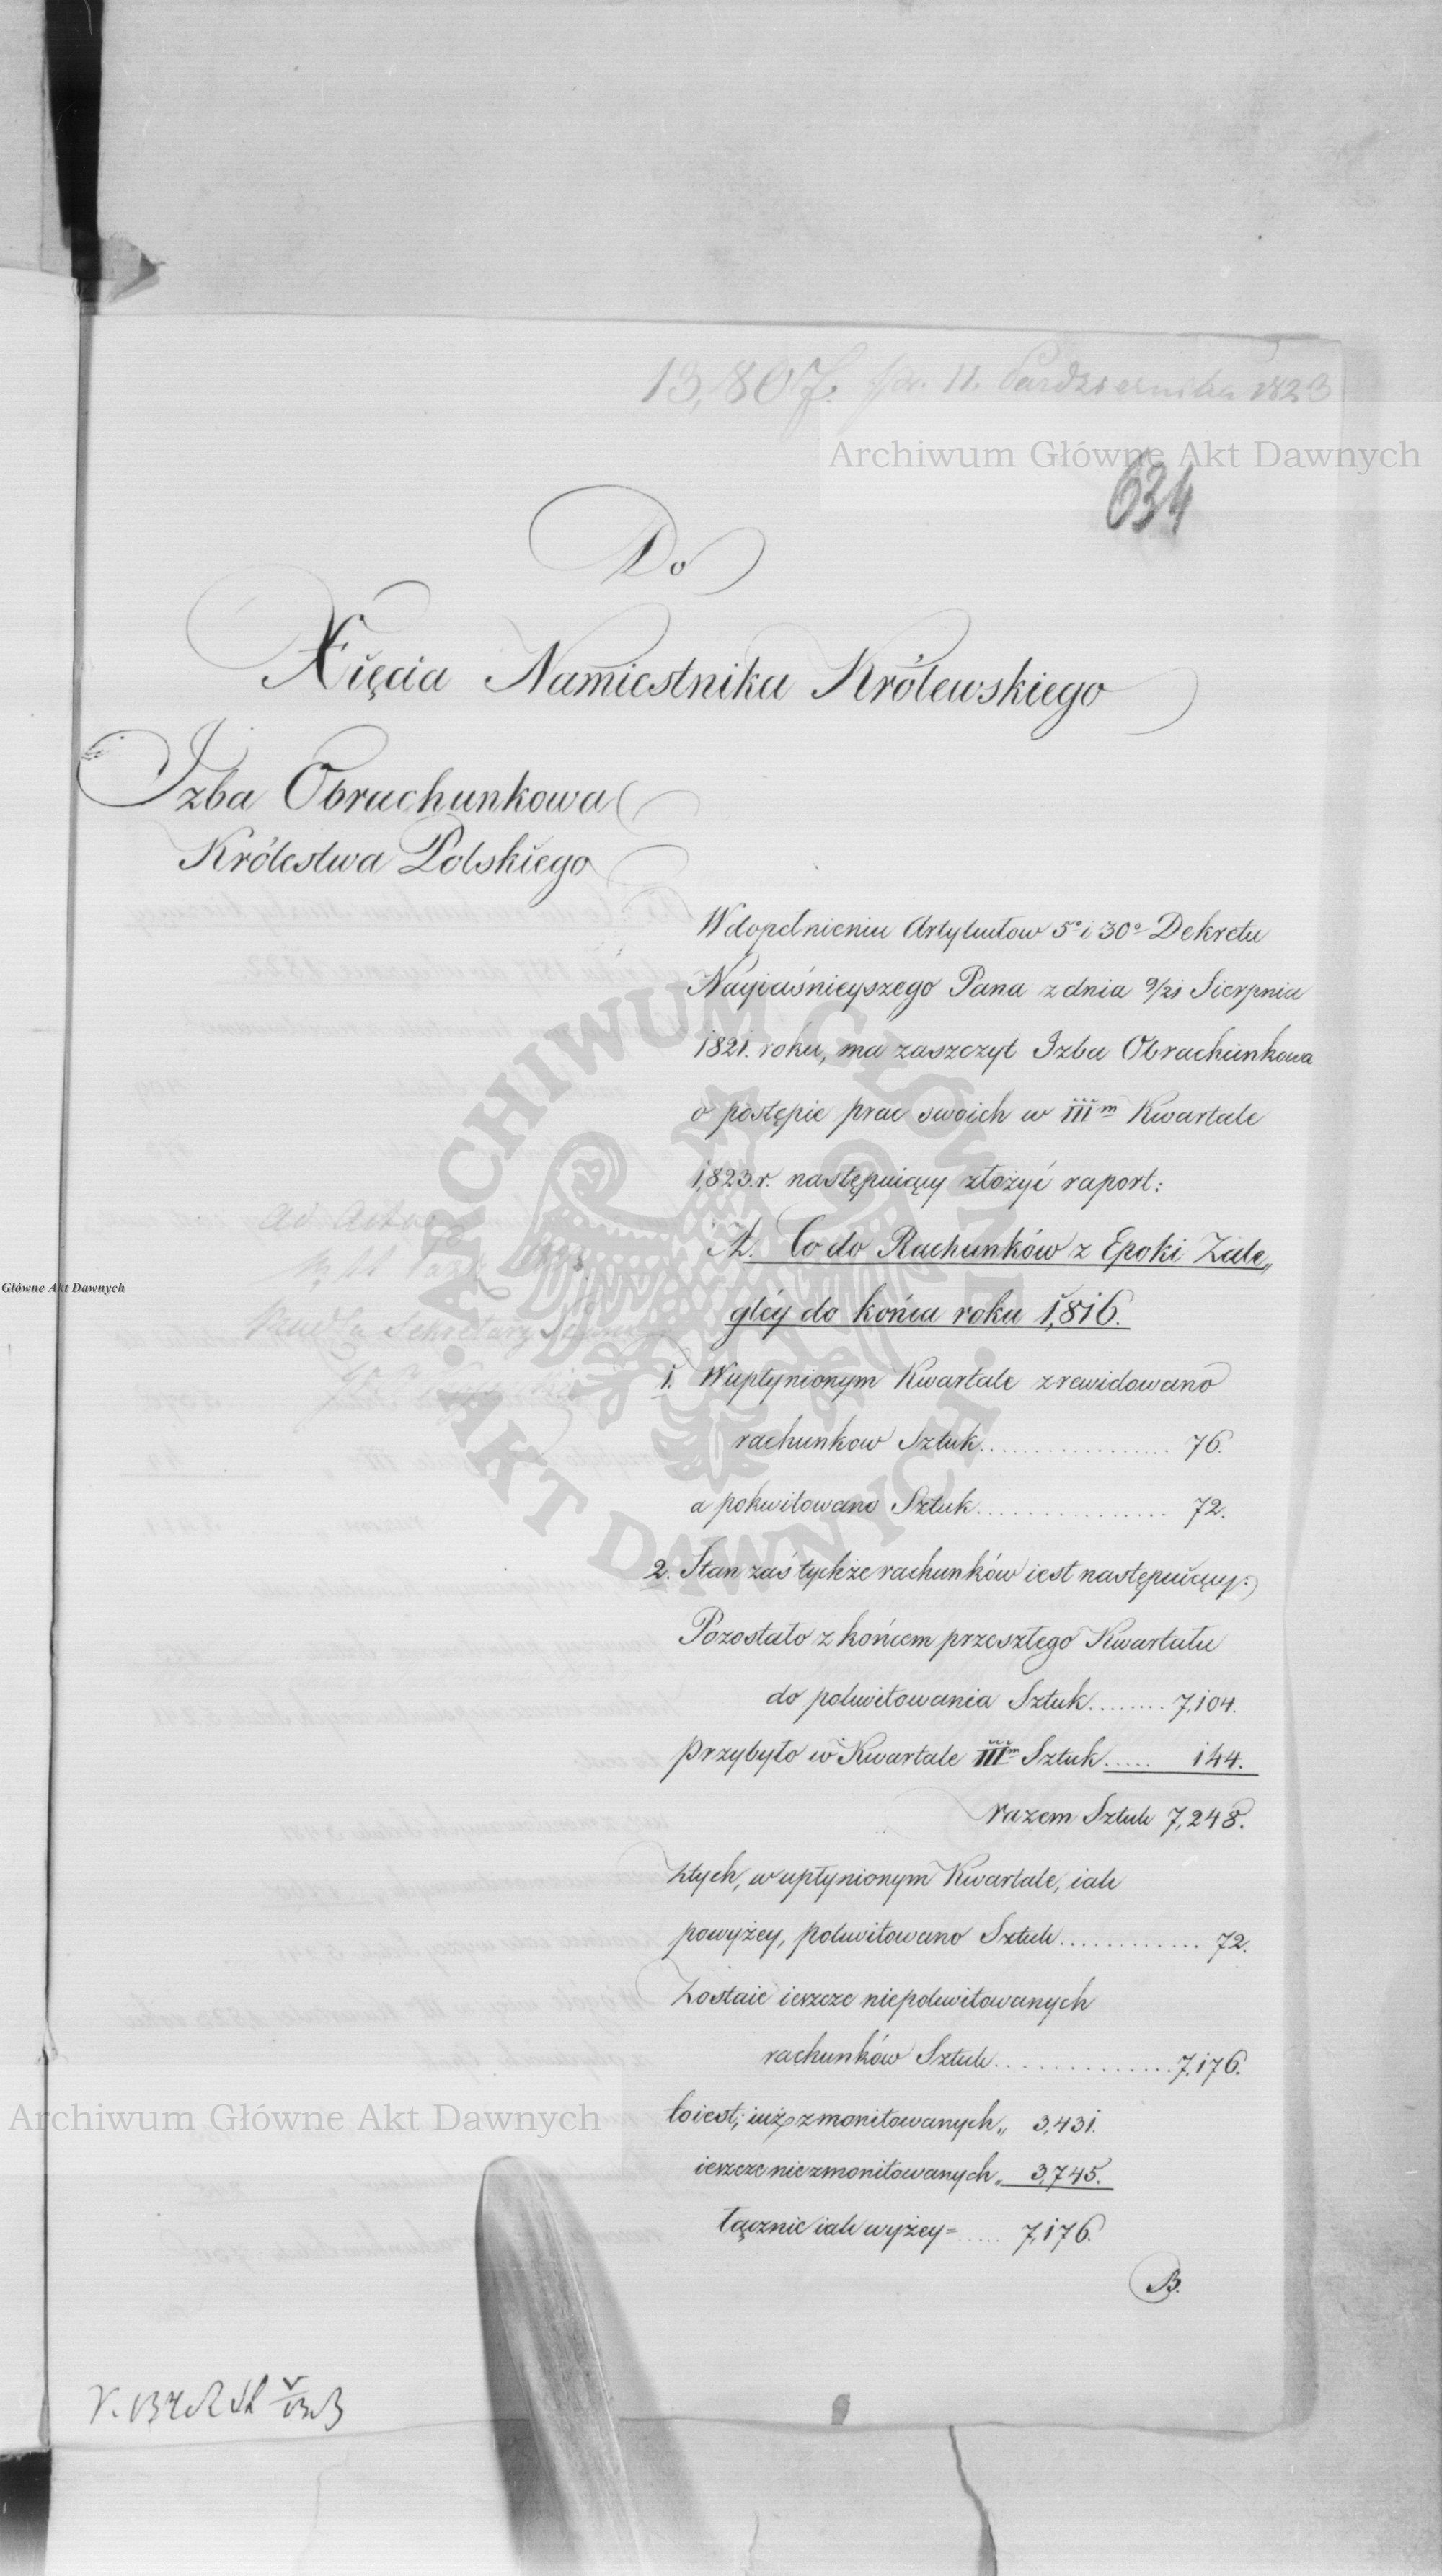 13,807. pr. 11. Października 1823
Archiwum Główne Akt Dawnych
634
Do
Xięcia Namiestnika Królewskiego
Izba Obrachunkowa
Królestwa Polskiego
W dopełnieniu Artykułow 5° i 30° Dekretu
Nayiaśnieyszego Pana z dnia 9/21 Sierpnia
1821. roku, ma zaszczyt Izba Obrachunkowa
o postępie prac swoich w III<sup>m</sup> Kwartale
1,823.r. następuiący złożyć raport:
A. Co do Rachunków z Epoki Zale„
głéy do końca roku 1,816.
1. W upłynionym Kwartale zrewidowano
rachunkow Sztuk.................. 76.
a pokwitowano Sztuk................ 72.
2. Stan zaś tychże rachunków iest następuiący:
Pozostało z końcem przeszłego Kwartału
do pokwitowania Sztuk........ 7,104.
przybyło w Kwartale III<sup>m</sup> Sztuk..... 144.
razem Sztuk 7,248.
Z tych, w upłynionym Kwartale, iak
powyżey, pokwitowano Sztuk............. 72.
Zostaie ieszcze niepokwitowanych
rachunków Sztuk................7,176.
to iest; iuż zmonitowanych „ 3,431.
ieszcze niezmonitowanych „ 3,745.
łącznie iak wyżey = ..... 7,176.
B.
Ad Acta
Sekretarz
Główne Akt Dawnych
ARCHIWUM GŁÓWNE
· AKT DAWNYCH ·
Archiwum Główne Akt Dawnych